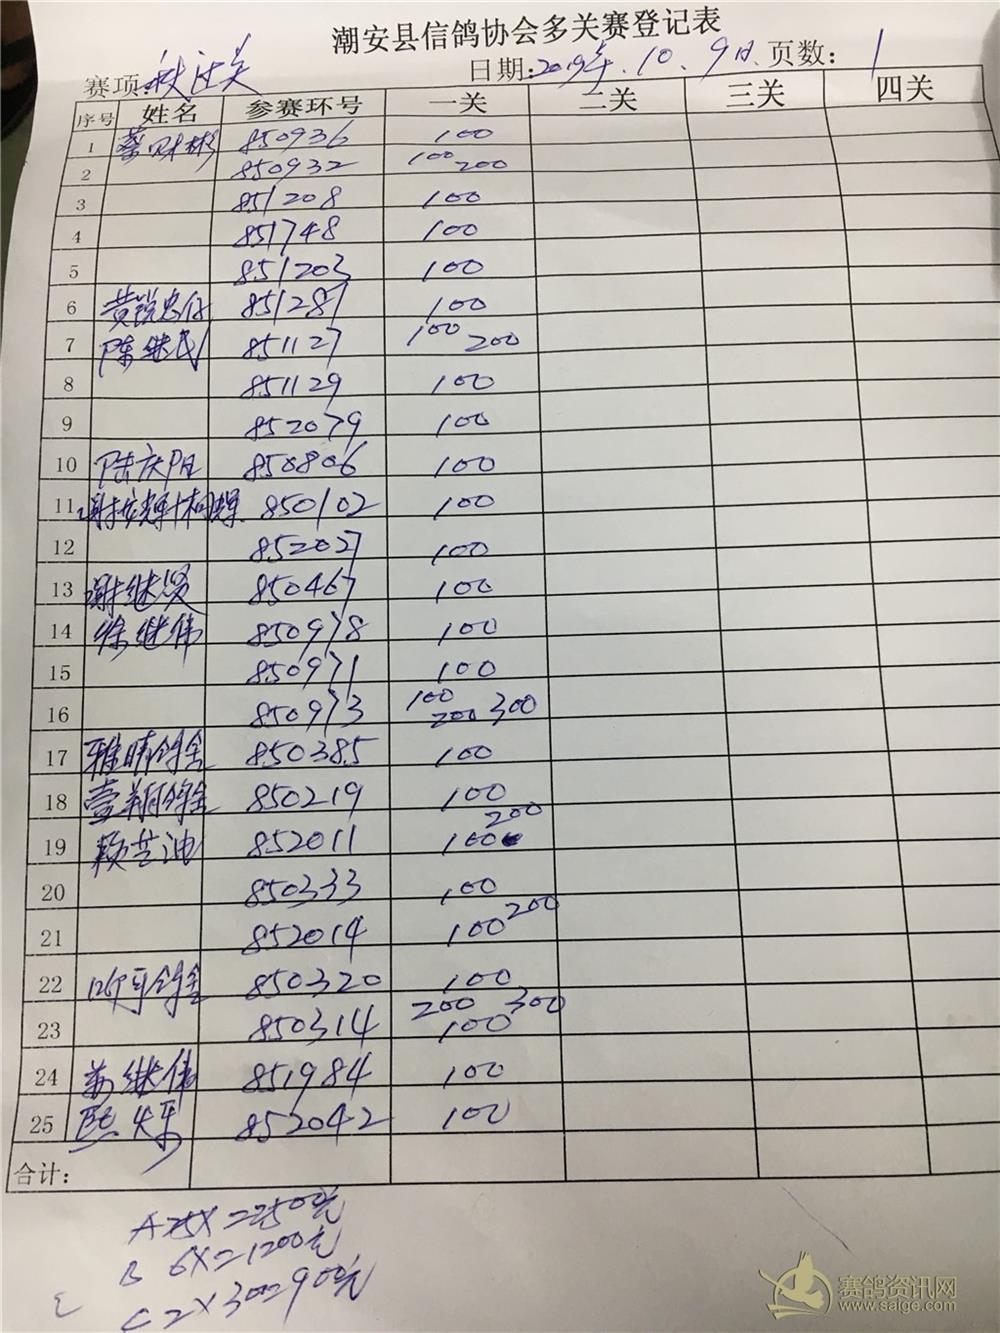 潮安县信鸽协会多关赛登记表
赛项: 秋 关 日期: 2019年.10.9日. 页数: 1
序号 姓名 参赛环号 一关 二关 三关 四关
1 蔡财彬 850936 100
2 850932 100 200
3 851208 100
4 851748 100
5 851203 100
6 黄锐忠仔 851287 100
7 陈继民 851127 100 200
8 851129 100
9 852079 100
10 陆庆阳 850806 100
11 850102 100
12 852027 100
13 谢继贤 850467 100
14 徐继伟 850978 100
15 850971 100
16 850973 100 200 300
17 雅晴鸽舍 850385 100
18 壹翔鸽舍 850219 100
19 852011 100 200
20 850333 100
21 852014 100 200
22 鸽舍 850320 100
23 850314 200 300 100
24 继伟 851984 100
25 熙 852042 100
合计:
A 25X=2500元
B 6X=1200元
C 2X300=900元
赛鸽资讯网
www.saige.com